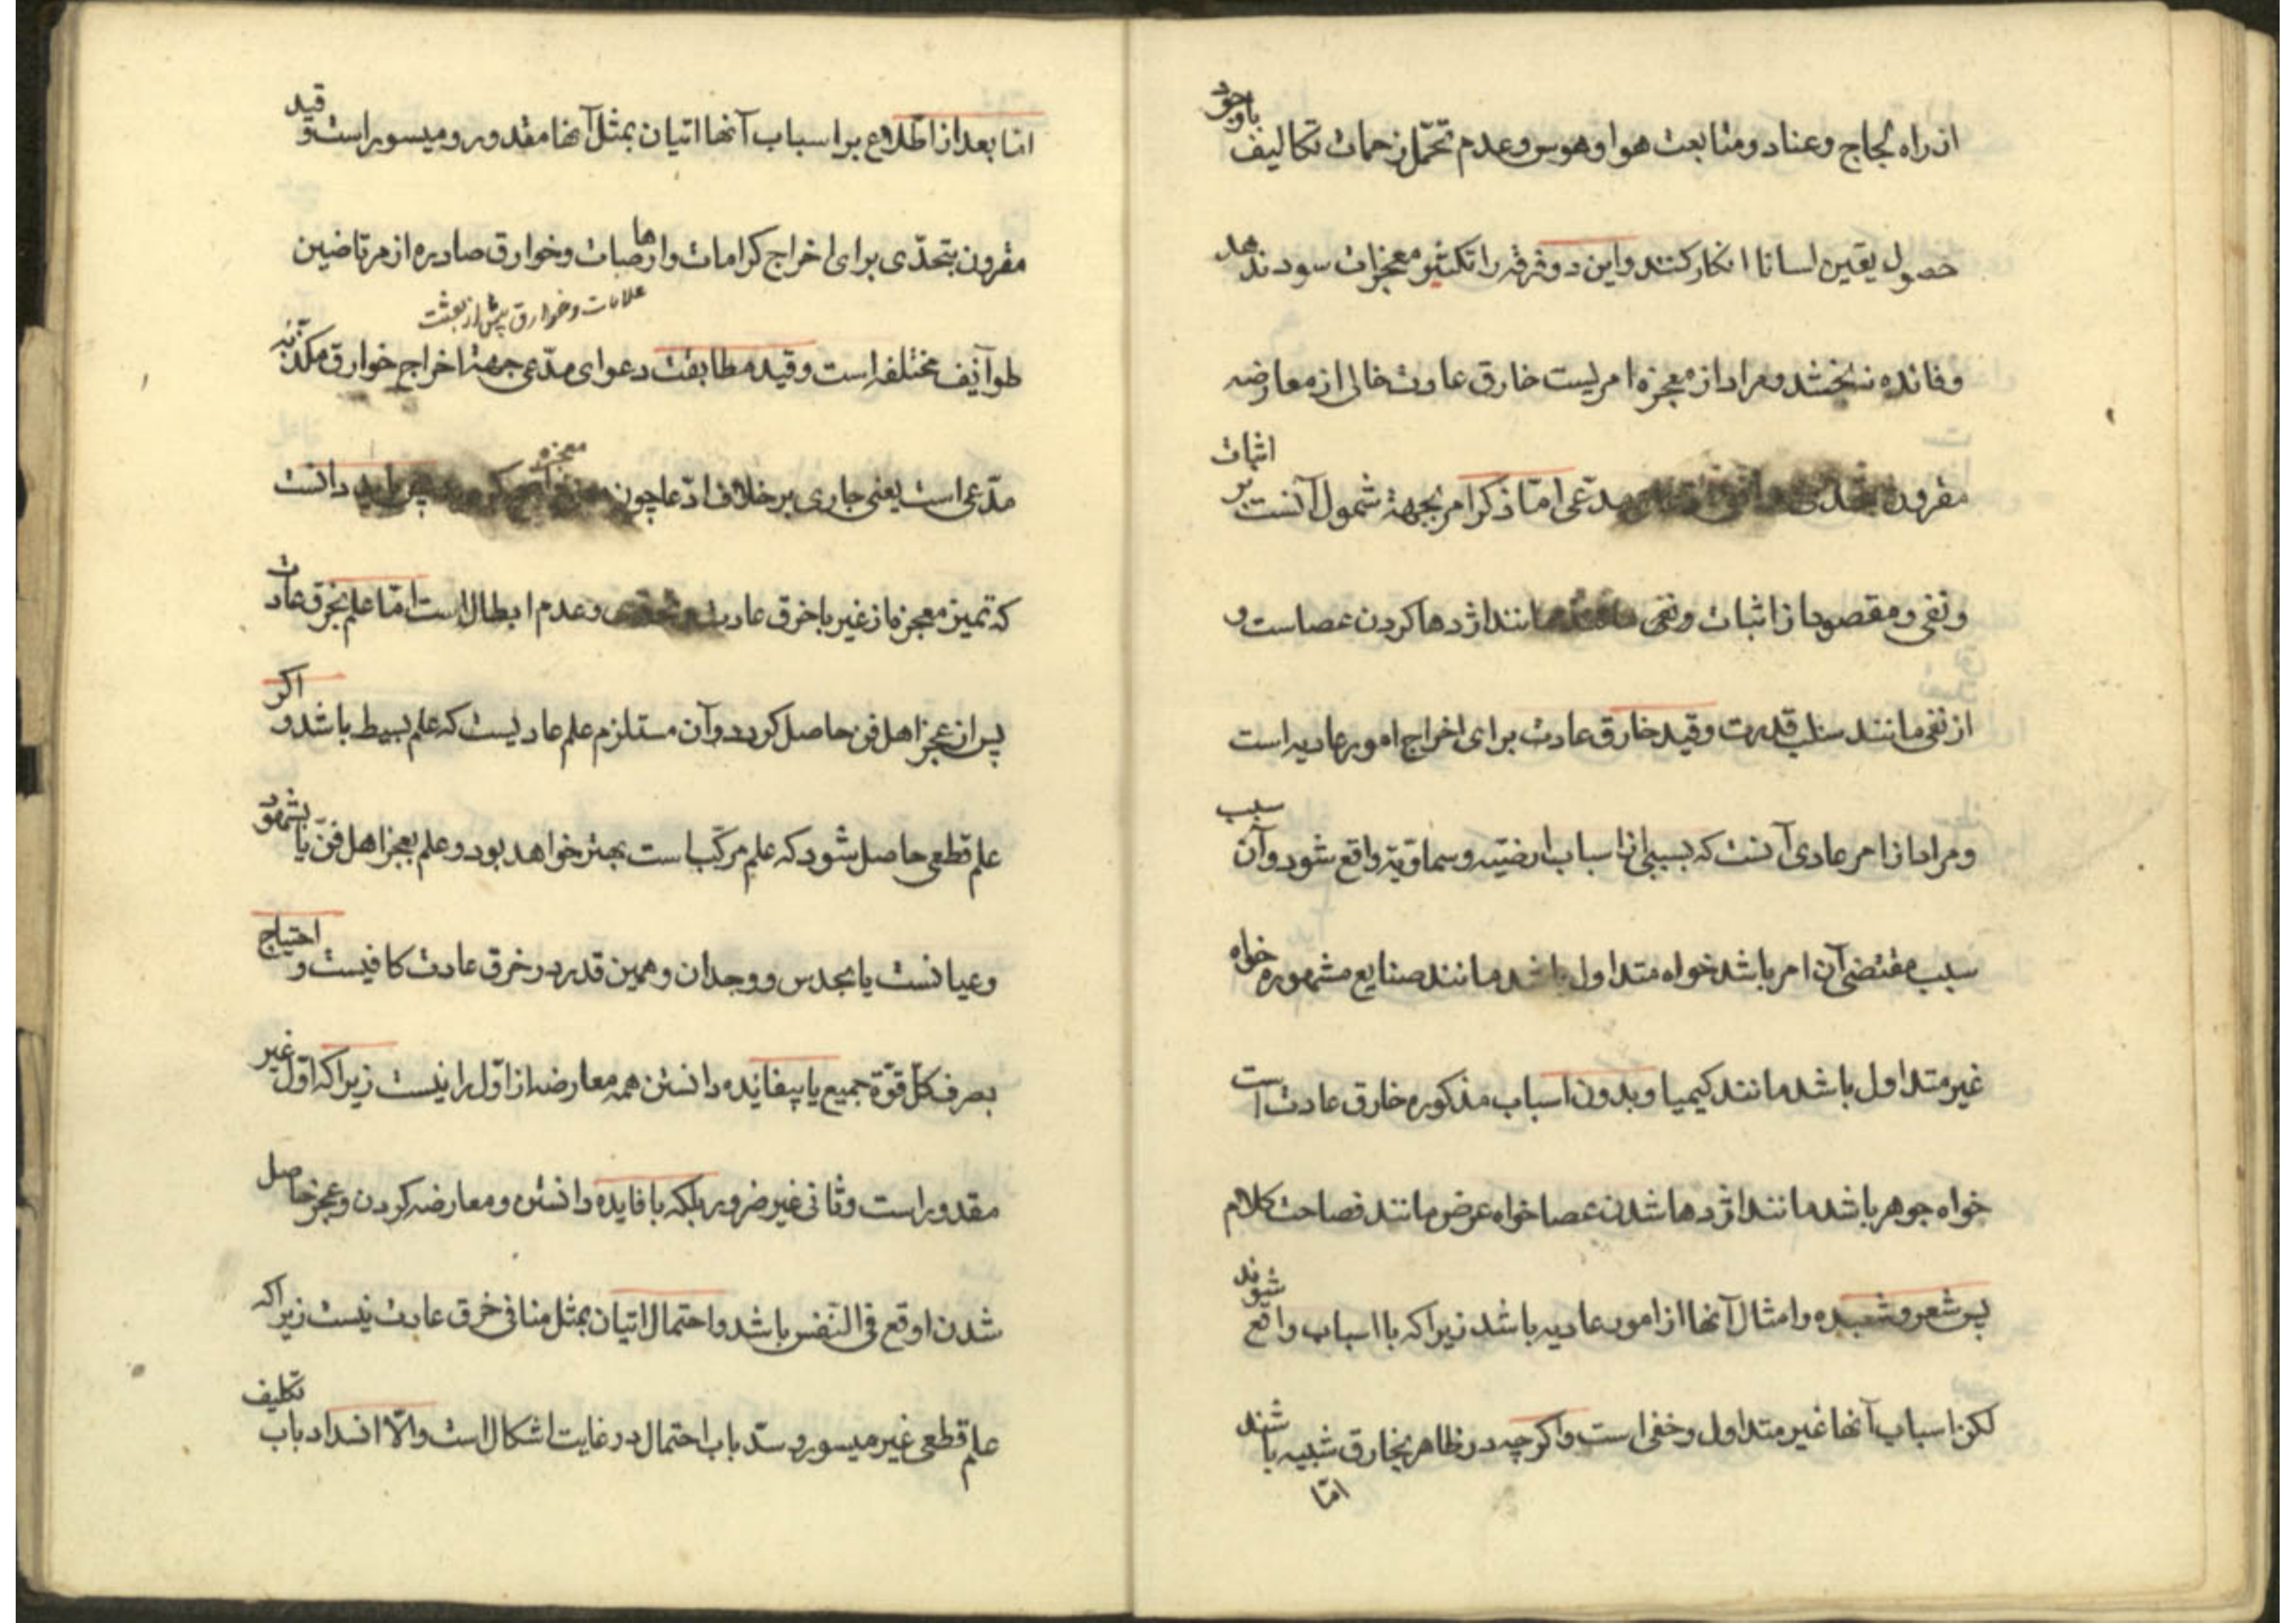 از راه لجاج و عناد و متابعت هوا و هوس و عدم تحمّل زحمات تکالیف باوجود
حصول یقین اسانا انکار کنند و این دو فرقه را تکثیر معجزات سود ندهد
و فائده نبخشد و مراد از معجزه امریست خارق عادت خالی از معارضه
مقرون مدّعی امّا ذکر امر بجهة شمول آنست بر اثبات
و نفی و مقصود از اثبات و نفی مانند اژدها کردن عصاست و
از نفی مانند سلب قدرت و قید خارق عادت برای اخراج امور عادیه است
و مراد از امر عادی آنست که بسببی از اسباب ارضیّه و سماویّه واقع شود و آن سبب
سبب مقتضی آن امر باشد خواه متداول باشد مانند صنایع مشهوره خواه
غیر متداول باشد مانند کیمیا و بدون اسباب مذکوره خارق عادت است
خواه جوهر باشد مانند اژدها شدن عصا خواه عرض مانند فصاحت کلام
پس شعر و شعبده و امثال آنها از امور عادیه باشد زیراکه با اسباب واقع شوند
لکن اسباب آنها غیر متداول و خفی است و اکرچه در ظاهر بخارق شبیه باشند
امّا
امّا بعد از اطّلاع بر اسباب آنها اتیان بمثل آنها مقدور و میسور است و قید
مقرون بتحدّی برای اخراج کرامات و ارهاصات و خوارق صادره از مرتاضین
علامات و خوارق پیش از بعثت
طوآئف مختلفه است و قید مطابقت دعوای مدّعی جهة اخراج خوارق مکذّبه
مدّعی است یعنی جاری بر خلاف ادّعا چون دانست
معجزه
که تمیز معجزه از غیر با خرق عادت و عدم ابطال است امّا علم بخرق عادت
پس از عجز اهل فن حاصل کردد و آن مستلزم علم عادیست که علم بسیط باشد و اکر
علم قطعی حاصل شود که علم مرکّب است بهتر خواهد بود و علم بعجز اهل فنّ یا بشهود
و عیانست یا بحدس و وجدان و همین قدر در خرق عادت کافیست و احتیاج
بصرف کلّ قوّة جمیع یا بیفایده دانستن همه معارضه از اوّل را نیست زیراکه اوّل غیر
مقدور است و ثانی غیر ضرور بلکه با فایده دانستن و معارضه کردن و عجز حاصل
شدن اوقع فی النّفس باشد و احتمال اتیان بمثل منافی خرق عادت نیست زیراکه
علم قطعی غیر میسور و سدّ باب احتمال در غایت اشکال است و الّا انسداد باب تکلیف